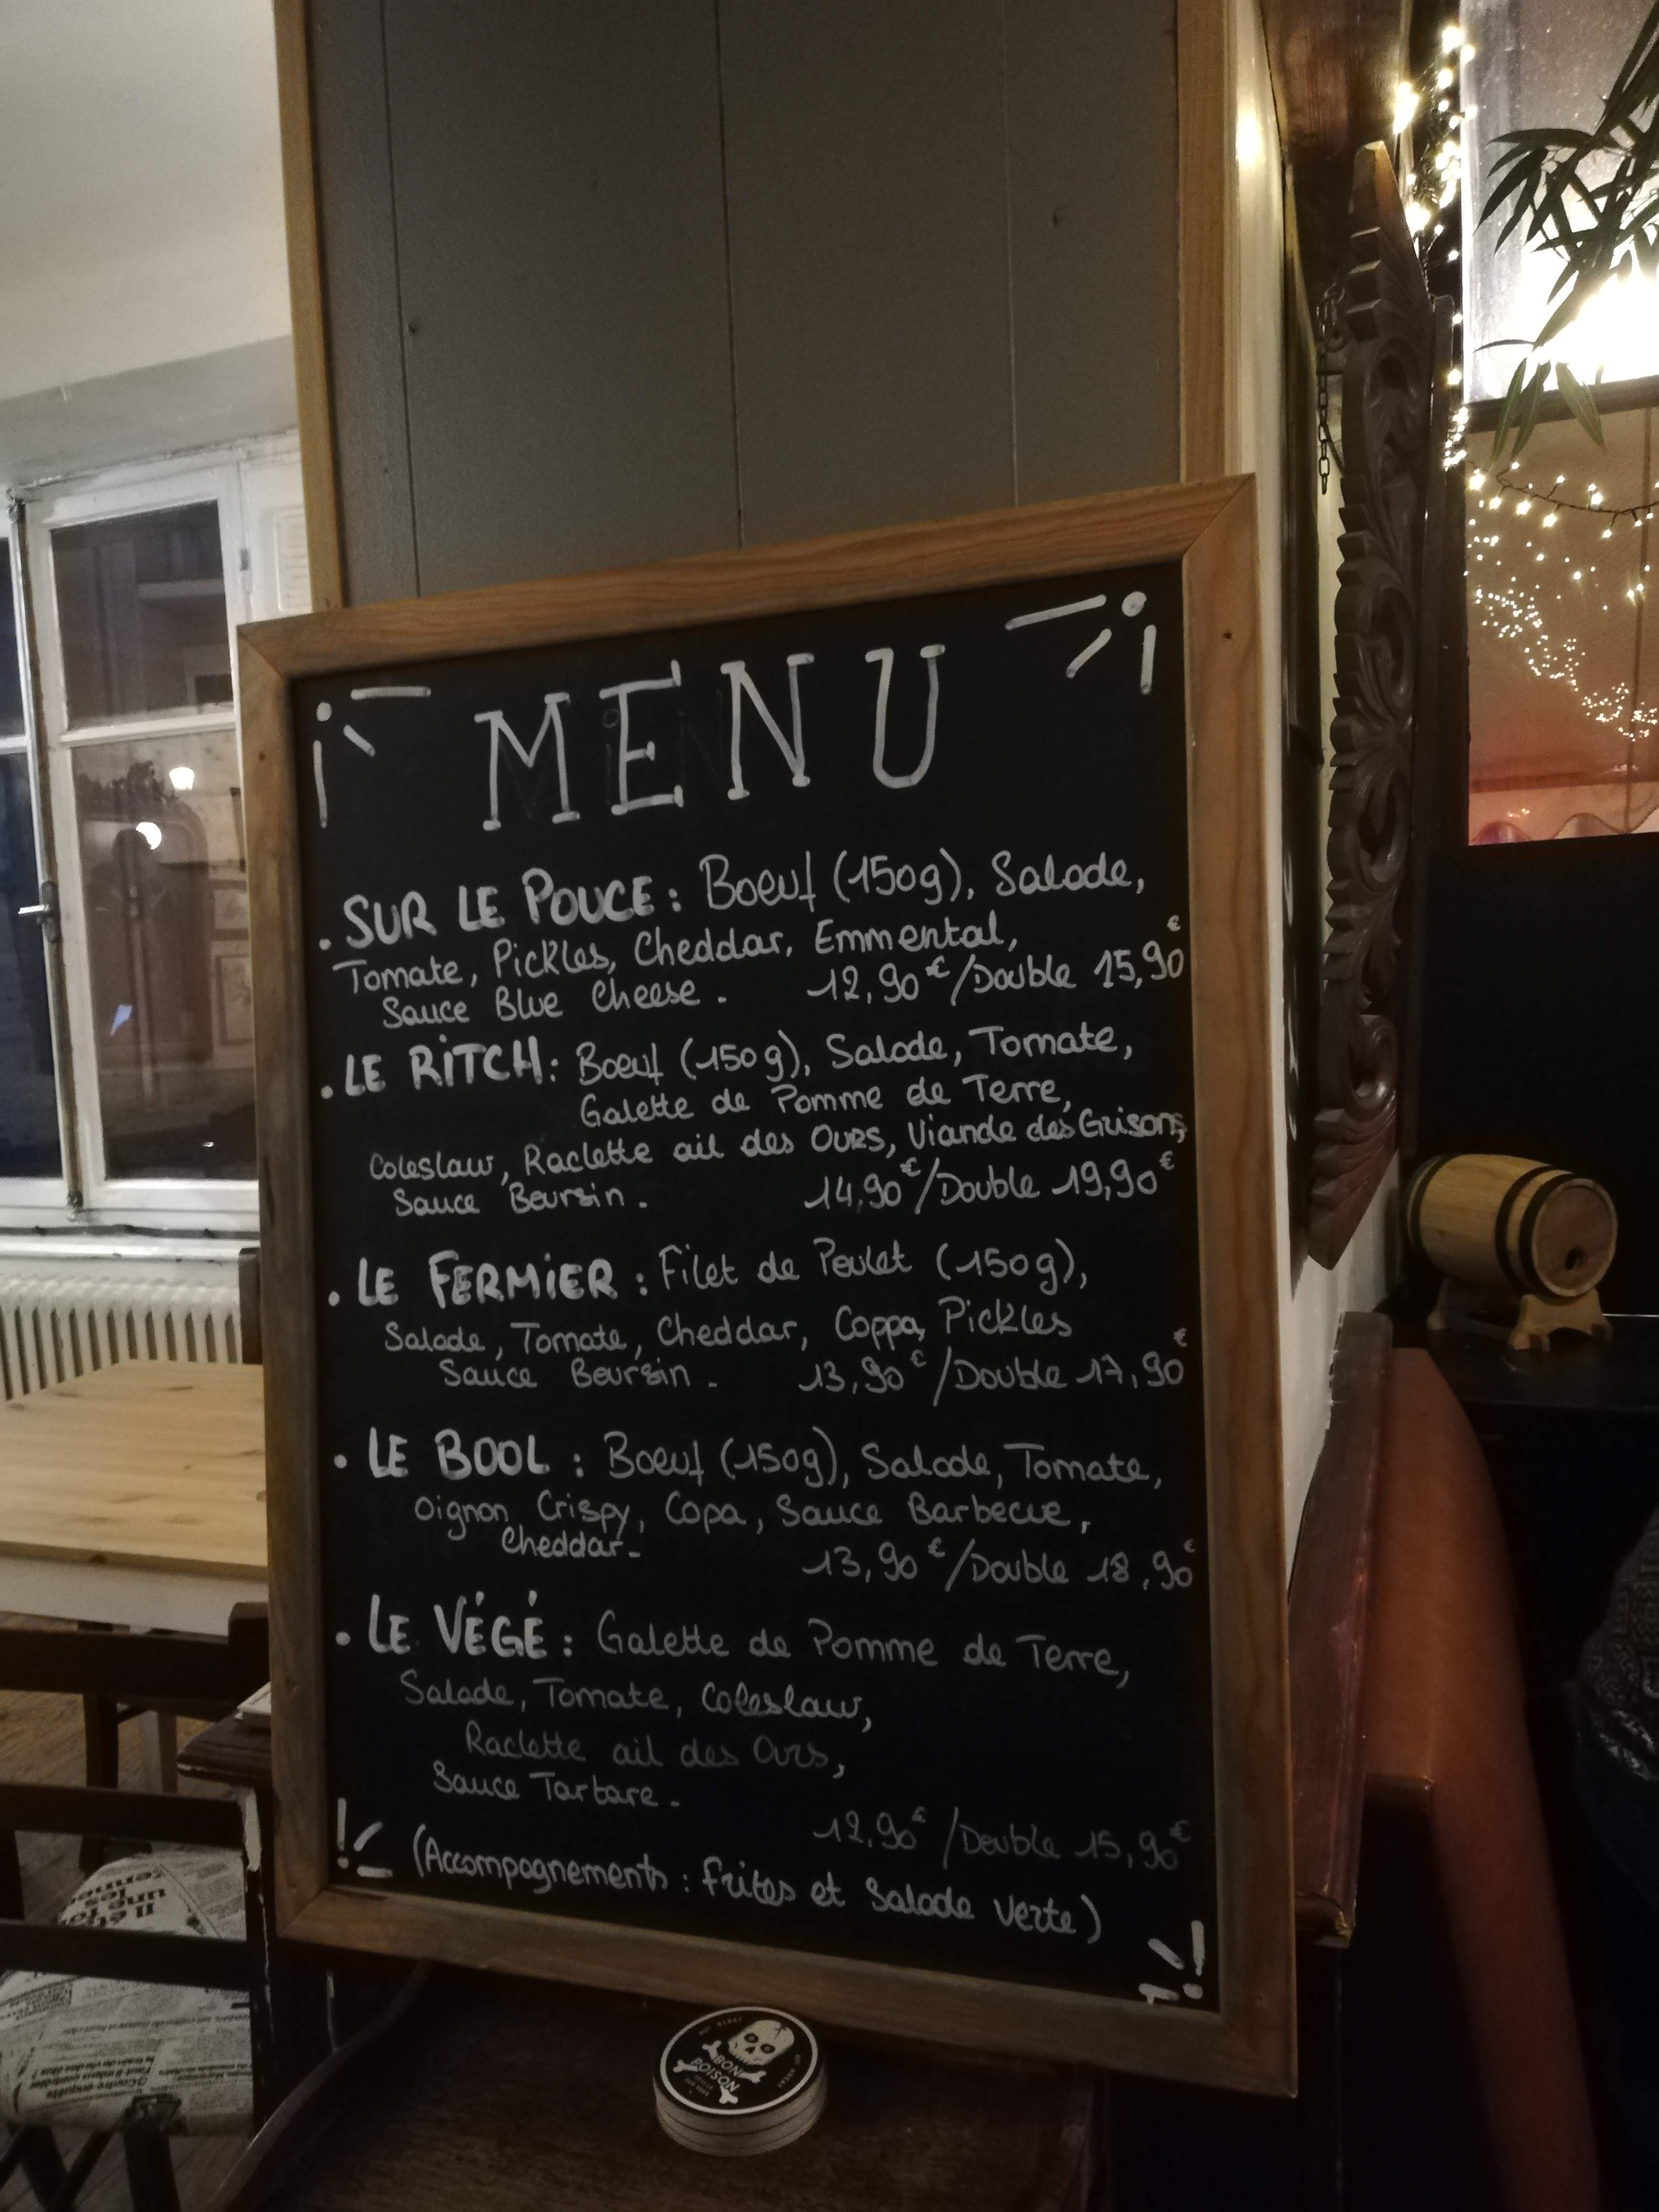 MENU
. SUR LE POUCE : Boeuf (150g), Salade,
Tomate, Pickles, Cheddar, Emmental,
Sauce Blue Cheese . 12,90€/Double 15,90€
. LE RITCH : Boeuf (150g), Salade, Tomate,
Galette de Pomme de Terre,
Coleslaw, Raclette ail des Ours, Viande des Grisons,
Sauce Boursin . 14,90€/Double 19,90€
. LE FERMIER : Filet de Poulet (150g),
Salade, Tomate, Cheddar, Coppa, Pickles
Sauce Boursin . 13,90€/Double 17,90€
. LE BOOL : Boeuf (150g), Salade, Tomate,
Oignon Crispy, Copa, Sauce Barbecue,
Cheddar. 13,90€/Double 18,90€
. LE VÉGÉ : Galette de Pomme de Terre,
Salade, Tomate, Coleslaw,
Raclette ail des Ours,
Sauce Tartare .
12,90€/Double 15,90€
(Accompagnements : frites et Salade verte)
BON
POISON